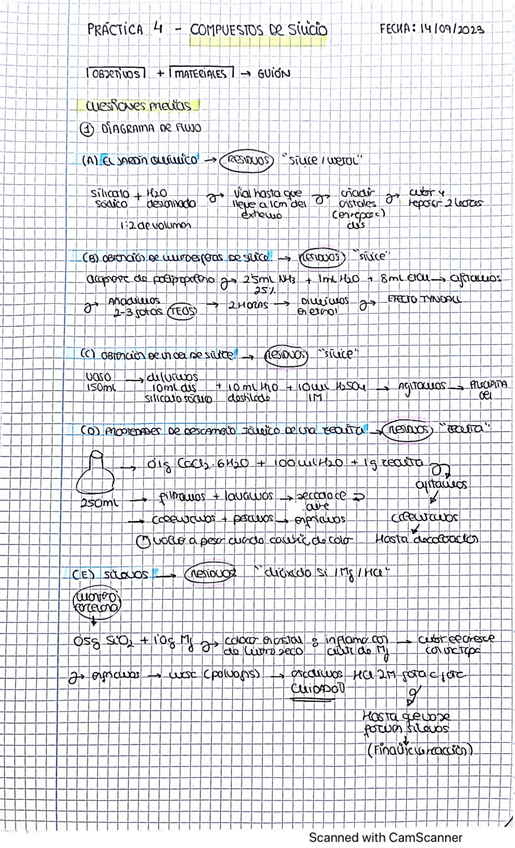 PRÁCTICA 4 - COMPUESTOS DE SILICIO FECHA: 14/09/2023
OBJETIVOS + MATERIALES → GUIÓN
CUESTIONES PREVIAS
① DIAGRAMA DE FLUJO
(A) EL JARDÍN QUÍMICO → RESIDUOS "SÍLICE/METAL"
Silicato + H2O → Vial hasta que → añadir → cubrir y
sódico destilada llegue a 1cm del cristales reposar 2 horas
extremo (en reposo)
1:2 de volumen
(B) OBTENCIÓN DE MICROESFERAS DE SÍLICE → RESIDUOS "SÍLICE"
de polipropileno → 25mL NH3 + 1mL H2O + 8mL EtOH → agitamos
25%
→ Añadimos → 2 HORAS → Diluimos → EFECTO TYNDALL
2-3 gotas TEOS en etanol
(C) OBTENCIÓN DE UN GEL DE SÍLICE → RESIDUOS "SÍLICE"
VASO → diluimos
150mL 10mL dis + 10mL H2O + 10mL H2SO4 → Agitamos →
silicato sódico destilada 1M GEL
(D) PROPIEDADES DE DE UNA ZEOLITA → RESIDUOS "ZEOLITA"
→ 0,1g CoCl2·6H2O + 100mL H2O + 1g zeolita
agitamos
250mL → filtramos + lavamos → secado de
aire
→ calentamos + pesamos → enfriamos calentamos
① Vuelve a pesar cuando cambie de color Hasta decoloración
(E) SILANOS → RESIDUOS "dióxido Si/Mg/HCl"
MORTERO
PORCELANA
0,5g SiO2 + 1,0g Mg → colocar cristal e inflamar con →
de vidrio seco cinta de Mg con tape
→ enfriamos → vaso → añadimos HCl 2M gota a gota
CUIDADO!
Hasta que no se
forman silanos
(Final de la reacción)
Scanned with CamScanner